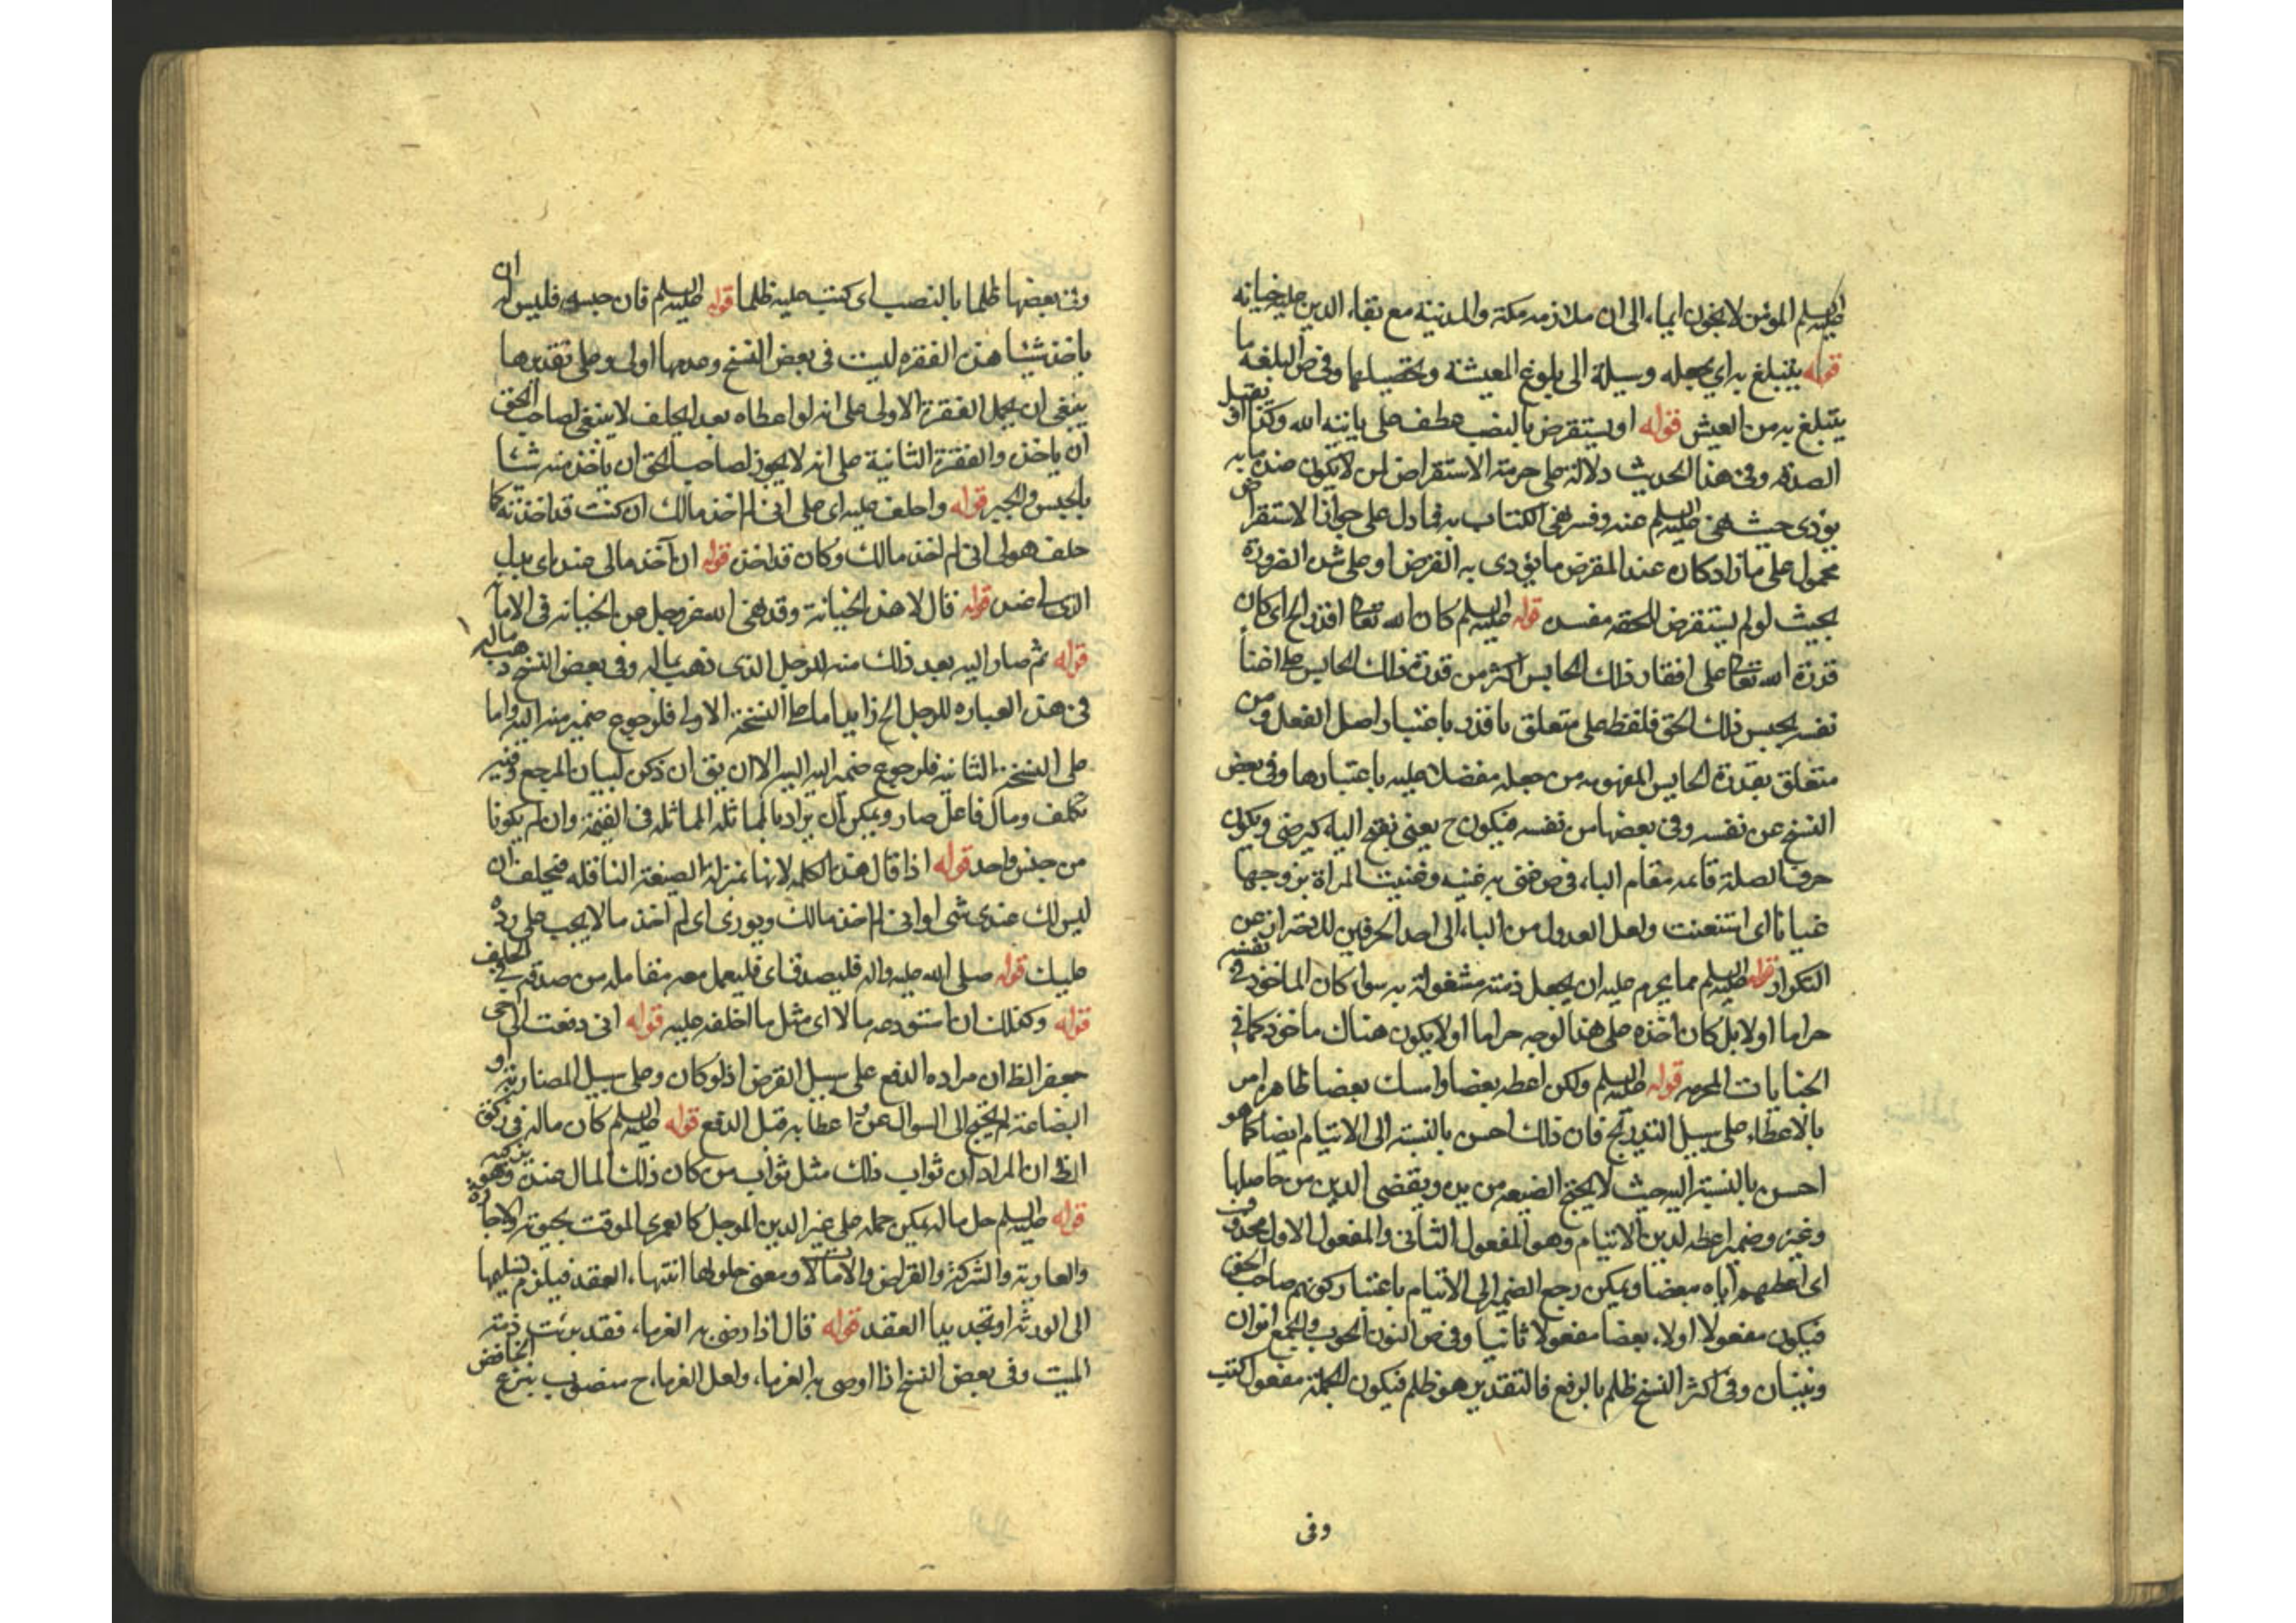 عليه السلم المؤمن لا يخون ايماء الى ان ملازمه مكة والمدينة مع بقاء الدين عليه خيانه
قوله يتبلغ به اى يجعله وسيلة الى بلوغ المعيشة وتحصيلها وفى ص البلغه ما
يتبلغ به من العيش قوله او يستقرض بالنصب عطف على ياتيه الله وكذا او يقبل
الصدقه وفى هذا الحديث دلالة على حرمة الاستقراض لمن لا يكون عنده ما به
يؤدى حيث نهى عليه السلم عنه وفسر نهى الكتاب به فما دل على جواز الاستقراض
محمول على ما اذا كان عند المقرض ما يؤدى به القرض او على شدة الضرورة
بحيث لو لم يستقرض للحقه مفسده قوله عليه السلم كان الله تعالى اقدر الخ اى كان
قدرة الله تعالى على افقار ذلك الحابس اكثر من قدرة ذلك الحابس على اغناء
نفسه بحبس ذلك الحق فلفظ على متعلق باقدر باعتبار اصل الفعل ومن
متعلق بقدرة الحابس المفهومه من جعله مفضلا عليه باعتبارها وفى بعض
النسخ عن نفسه وفى بعضها من نفسه فيكون ح يغنى بفتح الياء كيرضى ويكون
حرف الصلة قائمه مقام الباء فى ص غنى به غنيه وغنيت المراة بزوجها
غنيانا اى استغنت ولعل العدول من الباء الى احد الحرفين للاحتراز عن
التكرار قوله عليه السلم مما يحرم عليه ان يجعل ذمته مشغولة به سواء كان الماخوذ فى نفسه
حراما اولا بل كان اخذه على هذا الوجه حراما او لا يكون هناك ماخوذ كما فى
الجنايات المحرمه قوله عليه السلم ولكن اعطه بعضا وامسك بعضا ظاهره امر
بالاعطاء على سبيل التدريج فان ذلك احسن بالنسبة الى الايتام ايضا كما هو
احسن بالنسبة اليه حيث لا يخرج الضيعه من يده ويقضى الدين من حاصلها
وغيره وضمير اعطه لدين الايتام وهو المفعول الثانى والمفعول الاول محذوف
اى اعطهم اياه بعضا ويمكن رجع الضمير الى الايتام باعتبار كونهم صاحب الحق
فيكون مفعولا اولا، بعضا مفعولا ثانيا وفى ص النون الحوت والجمع انوان
ونينان وفى اكثر النسخ ظلم بالرفع فالتقدير هو ظلم فيكون الجملة مفعول كتب
وفى
وفى بعضها ظلما بالنصب اى كتب عليه ظلما قوله عليه السلم فان حبسه فليس له ان
ياخذ شيئا هذه الفقره ليست فى بعض النسخ وعدمها اولى وعلى تقديرها
ينبغى ان يحمل الفقرة الاولى على انه لو اعطاه بعد الحلف لا ينبغى لصاحب الحق
ان ياخذه والفقرة الثانية على انه لا يجوز لصاحب الحق ان ياخذ منه شيئا
بالحبس والجبر قوله واحلف عليه اى على انى لم اخذ مالك ان كنت قد اخذته كما
حلف هو لى انى لم اخذ مالك وكان قد اخذه قوله ان آخذ مالى عنده اى بدل
الذى لى عنده قوله قال لا هذه الخيانة وقد نهى الله عز وجل عن الخيانه فى الامانه
قوله ثم صار اليه بعد ذلك منه للرجل الذى ذهب بماله وفى بعض النسخ ذهب ماله
فى هذه العباره للرجل الخ زايد اما على النسخة الاولى فلرجوع ضمير منه اليه واما
على النسخة الثانيه فلرجوع ضمير اليه اليه الا ان يق ان ذكره لبيان المرجع وفيه
تكلف ومال فاعل صار ويمكن ان يراد بالمماثله المماثله فى القيمة وان لم يكونا
من جنس واحد قوله اذا قال هذه الكلمه لانها بمنزلة الصيغة الناقله فيحلف ان
ليس لك عندى شى او انى لم اخذ مالك ويورى اى لم اخذ ما لا يجب على رده
عليك قوله صلى الله عليه واله فليصدق اى فليعمل معه معامله من صدقه فى الحلف
قوله وكذلك ان استودعه مالا اى مثل ما احلفه عليه قوله انى دفعت الى اخى
جعفر الظ ان مراده الدفع على سبيل القرض اذ لو كان وعلى سبيل المضاربة او
البضاعة لم يحتج الى السوال عن اعطائه قبل الدفع قوله عليه السلم كان ماله فى زكوة
الظ ان المراد ان ثواب ذلك مثل ثواب من كان ذلك المال عنده وهو يزكيه
قوله عليه السلم حل ماله يمكن حمله على غير الدين الموجل كالعمرى الموقت بحيوته والاجاره
والعارية والشركة والقراض والامثالا ومعنى حلولها انتهاء العقد فيلزم تسليمها
الى الورثه او تجديد العقد قوله قال اذا رضى به الغرماء فقد برئت ذمة
الميت وفى بعض النسخ اذا اوصى به الغرماء، ولعل الغرماء ح منصوب بنزع الخافض